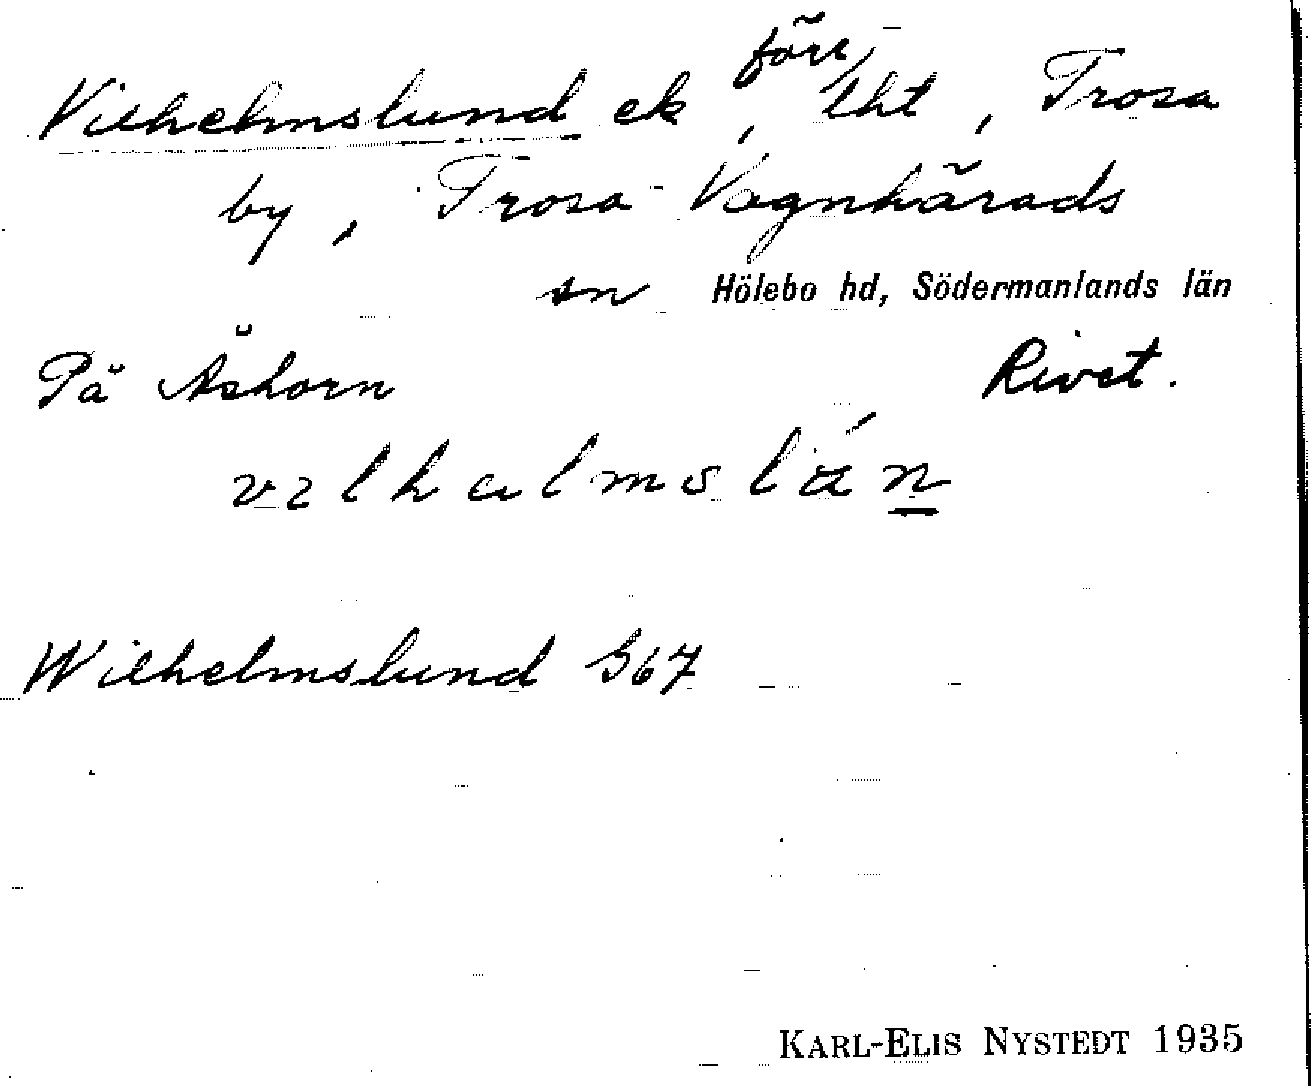 förr
Vilhelmslund ek, lht, Trosa
by, Trosa-Vagnhärads
sn Hölebo hd, Södermanlands län
På Åshorn Rivet.
vɩlhalmslán
Wilhelmslund G67
KARL-ELIS NYSTEDT 1935